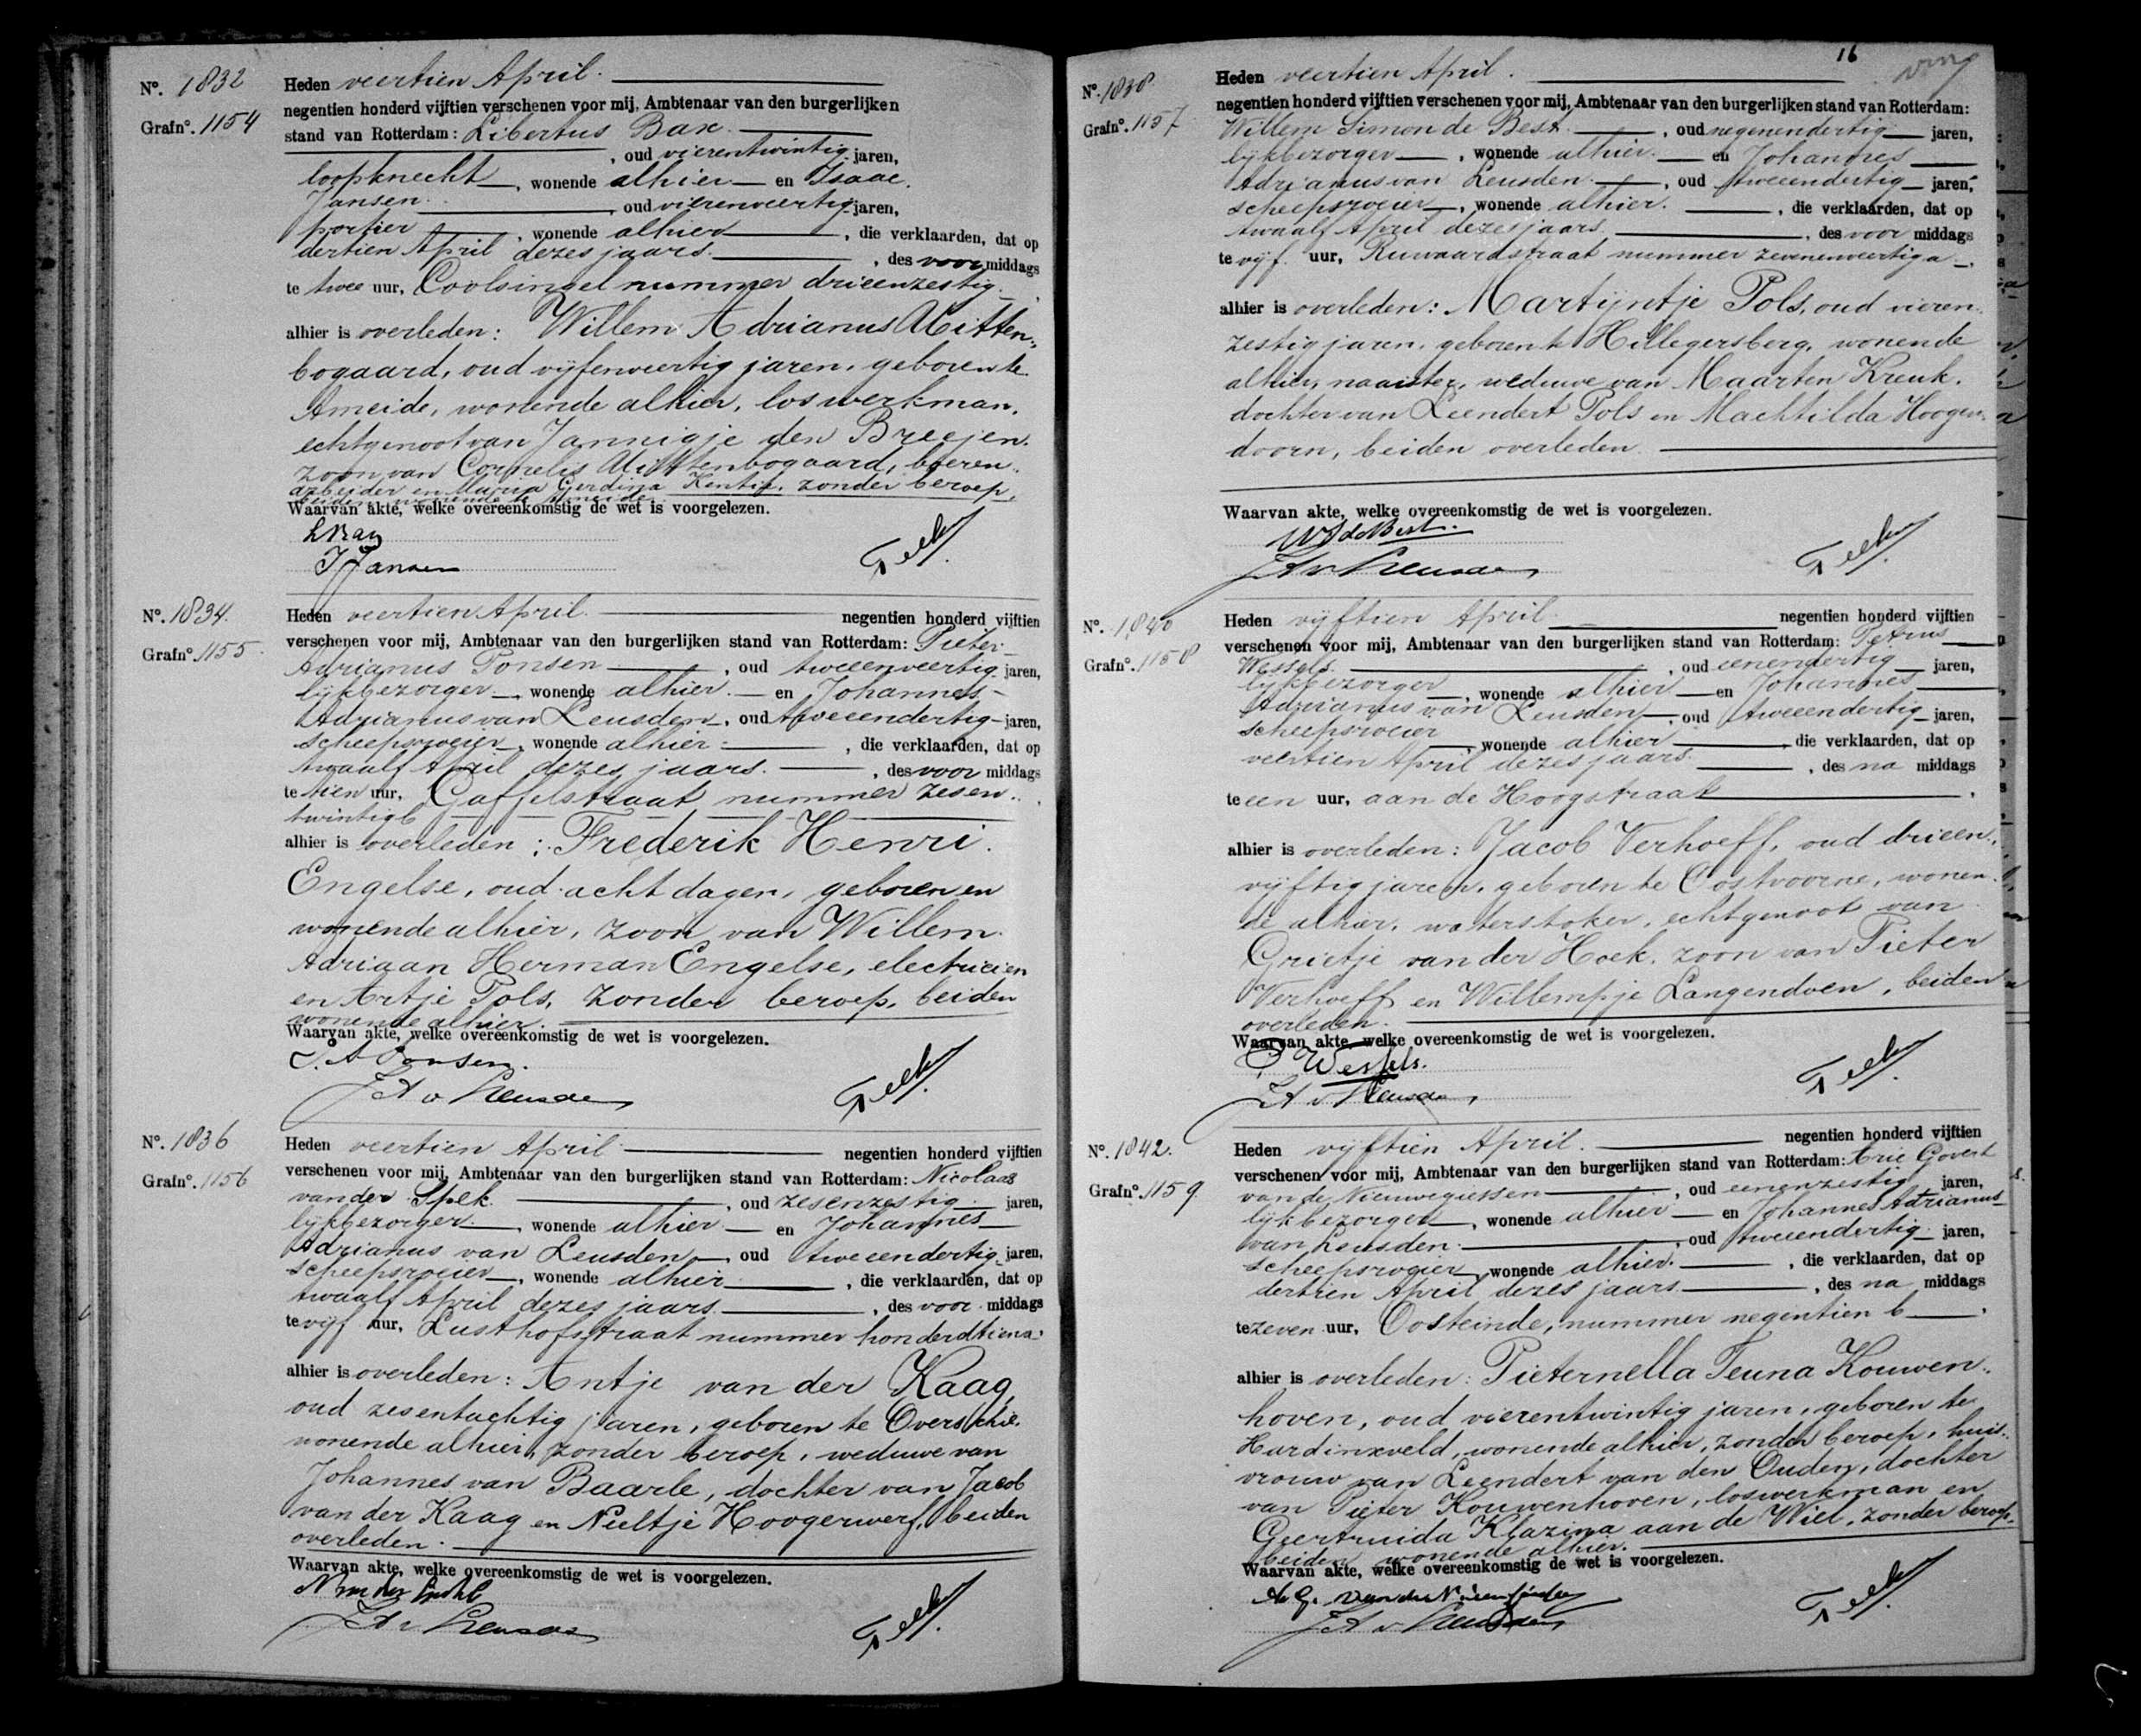 Nº. 1832
Grafnº. 1154
Heden veertien April.
negentien honderd vijftien verschenen voor mij, Ambtenaar van den burgerlijken
stand van Rotterdam: Libertus Bax.
, oud vierentwintig jaren,
loopknecht, wonende alhier en Isaac
Jansen. , oud vierenveertig jaren,
portier, wonende alhier, die verklaarden, dat op
dertien April dezes jaars. , des voor middags
te twee uur, Coolsingel nummer drieenzestig.
alhier is overleden: Willem Adrianus Uitten-
bogaard, oud vijfenveertig jaren, geboren te
Ameide, wonende alhier, los werkman,
echtgenoot van Jannigje den Breejen.
zoon van Cornelis Uittenbogaard, boeren-
arbeider en Maria Gerdina Kentie, zonder beroep,
beiden wonende te Ameide.
Waarvan akte, welke overeenkomstig de wet is voorgelezen.
L Bax
I Jansen
Nº. 1834.
Grafnº. 1155
Heden veertien April. negentien honderd vijftien
verschenen voor mij, Ambtenaar van den burgerlijken stand van Rotterdam: Pieter
Adrianus Ponsen, oud tweeenveertig jaren,
lijkbezorger, wonende alhier. en Johannes
Adrianus van Leusden, oud tweeendertig jaren,
scheepsroeier, wonende alhier, die verklaarden, dat op
twaalf April dezes jaars. , des voor middags
te tien uur, Gaffelstraat nummer zesen-
twintig b
alhier is overleden: Frederik Henri
Engelse, oud acht dagen, geboren en
wonende alhier, zoon van Willem
Adriaan Herman Engelse, electricien
en Artje Pols, zonder beroep, beiden
wonende alhier.
Waarvan akte, welke overeenkomstig de wet is voorgelezen.
P. A Ponsen.
J A v Leusden
Nº. 1836
Grafnº. 1156
Heden veertien April negentien honderd vijftien
verschenen voor mij, Ambtenaar van den burgerlijken stand van Rotterdam: Nicolaas
van der Spek, oud zesenzestig jaren,
lijkbezorger, wonende alhier en Johannes
Adrianus van Leusden, oud tweeendertig jaren,
scheepsroeier, wonende alhier, die verklaarden, dat op
twaalf April dezes jaars, des voor middags
te vijf uur, Lusthofstraat nummer honderdtien a.
alhier is overleden: Antje van der Kaag
oud zesentachtig jaren, geboren te Overschie,
wonende alhier, zonder beroep, weduwe van
Johannes van Baarle, dochter van Jacob
van der Kaag en Neeltje Hoogerwerf, beiden
overleden.
Waarvan akte, welke overeenkomstig de wet is voorgelezen.
N van der Spek
J A v Leusden
16
Nº. 1838
Grafnº. 1157
Heden veertien April.
negentien honderd vijftien verschenen voor mij, Ambtenaar van den burgerlijken stand van Rotterdam:
Willem Simon de Best, oud negenendertig jaren,
lijkbezorger, wonende alhier. en Johannes
Adrianus van Leusden, oud tweeendertig jaren,
scheepsroeier, wonende alhier. , die verklaarden, dat op
twaalf April dezes jaars. , des voor middags
te vijf uur, Ruwaardstraat nummer zevenenveertig a.
alhier is overleden: Martijntje Pols, oud vieren-
zestig jaren, geboren te Hillegersberg, wonende
alhier, naaister, weduwe van Maarten Kreuk.
dochter van Leendert Pols en Machtilda Hoogen-
doorn, beiden overleden.
Waarvan akte, welke overeenkomstig de wet is voorgelezen.
W S de Best.
J A v Leusden
Nº. 1840
Grafnº. 1158
Heden vijftien April negentien honderd vijftien
verschenen voor mij, Ambtenaar van den burgerlijken stand van Rotterdam: Petrus
Wessels. , oud eenendertig jaren,
lijkbezorger, wonende alhier en Johannes
Adrianus van Leusden, oud tweeendertig jaren,
scheepsroeier, wonende alhier, die verklaarden, dat op
veertien April dezes jaars. , des na middags
te een uur, aan de Hoogstraat.
alhier is overleden: Jacob Verhoeff, oud drieen-
vijftig jaren, geboren te Oostvoorne, wonen-
de alhier, waterstoker, echtgenoot van
Grietje van der Hoek, zoon van Pieter
Verhoeff en Willempje Langendoen, beiden
overleden.
Waarvan akte, welke overeenkomstig de wet is voorgelezen.
P Wessels.
J A v Leusden
Nº. 1842.
Grafnº. 1159
Heden vijftien April. negentien honderd vijftien
verschenen voor mij, Ambtenaar van den burgerlijken stand van Rotterdam: Arie Govert
van de Nieuwegiessen, oud eenenzestig jaren,
lijkbezorger, wonende alhier en Johannes Adrianus
van Leusden. , oud tweeendertig jaren,
scheepsroeier, wonende alhier. , die verklaarden, dat op
dertien April dezes jaars, des na middags
te zeven uur, Oosteinde, nummer negentien b.
alhier is overleden: Pieternella Teuna Kouwen-
hoven, oud vierentwintig jaren, geboren te
Hardinxveld, wonende alhier, zonder beroep, huis-
vrouw van Leendert van den Ouden, dochter
van Pieter Kouwenhoven, loswerkman en
Geertruida Klazina aan de Wiel, zonder beroep,
beiden wonende alhier.
Waarvan akte, welke overeenkomstig de wet is voorgelezen.
J A v Leusden